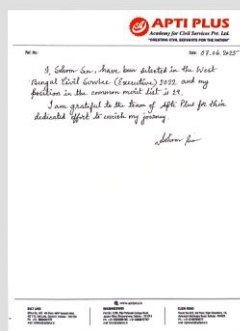 APTI PLUS
Academy for Civil Services Pvt. Ltd.
"CREATING CIVIL SERVANTS FOR THE NATION"
Ref. No.: Date: 07.06.2025
I, Sohom Sen, have been selected in the West
Bengal Civil Service (Executive) 2022 and my
position in the common merit list is 19.
I am grateful to the team of Apti Plus for their
dedicated effort to enrich my journey.
Sohom Sen